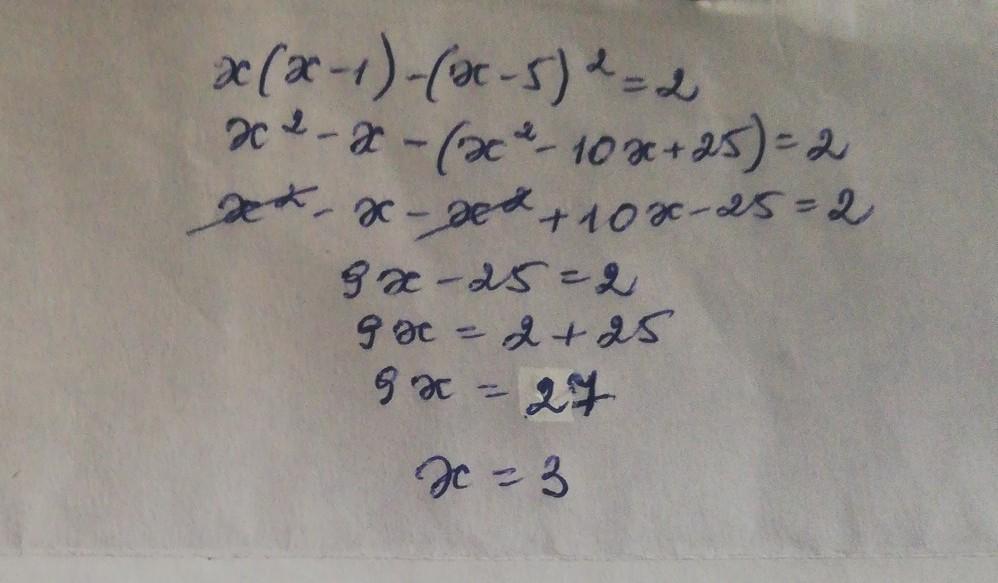 x(x-1)-(x-5)²=2
x²-x-(x²-10x+25)=2
x²-x-x²+10x-25=2
9x-25=2
9x=2+25
9x=27
x=3